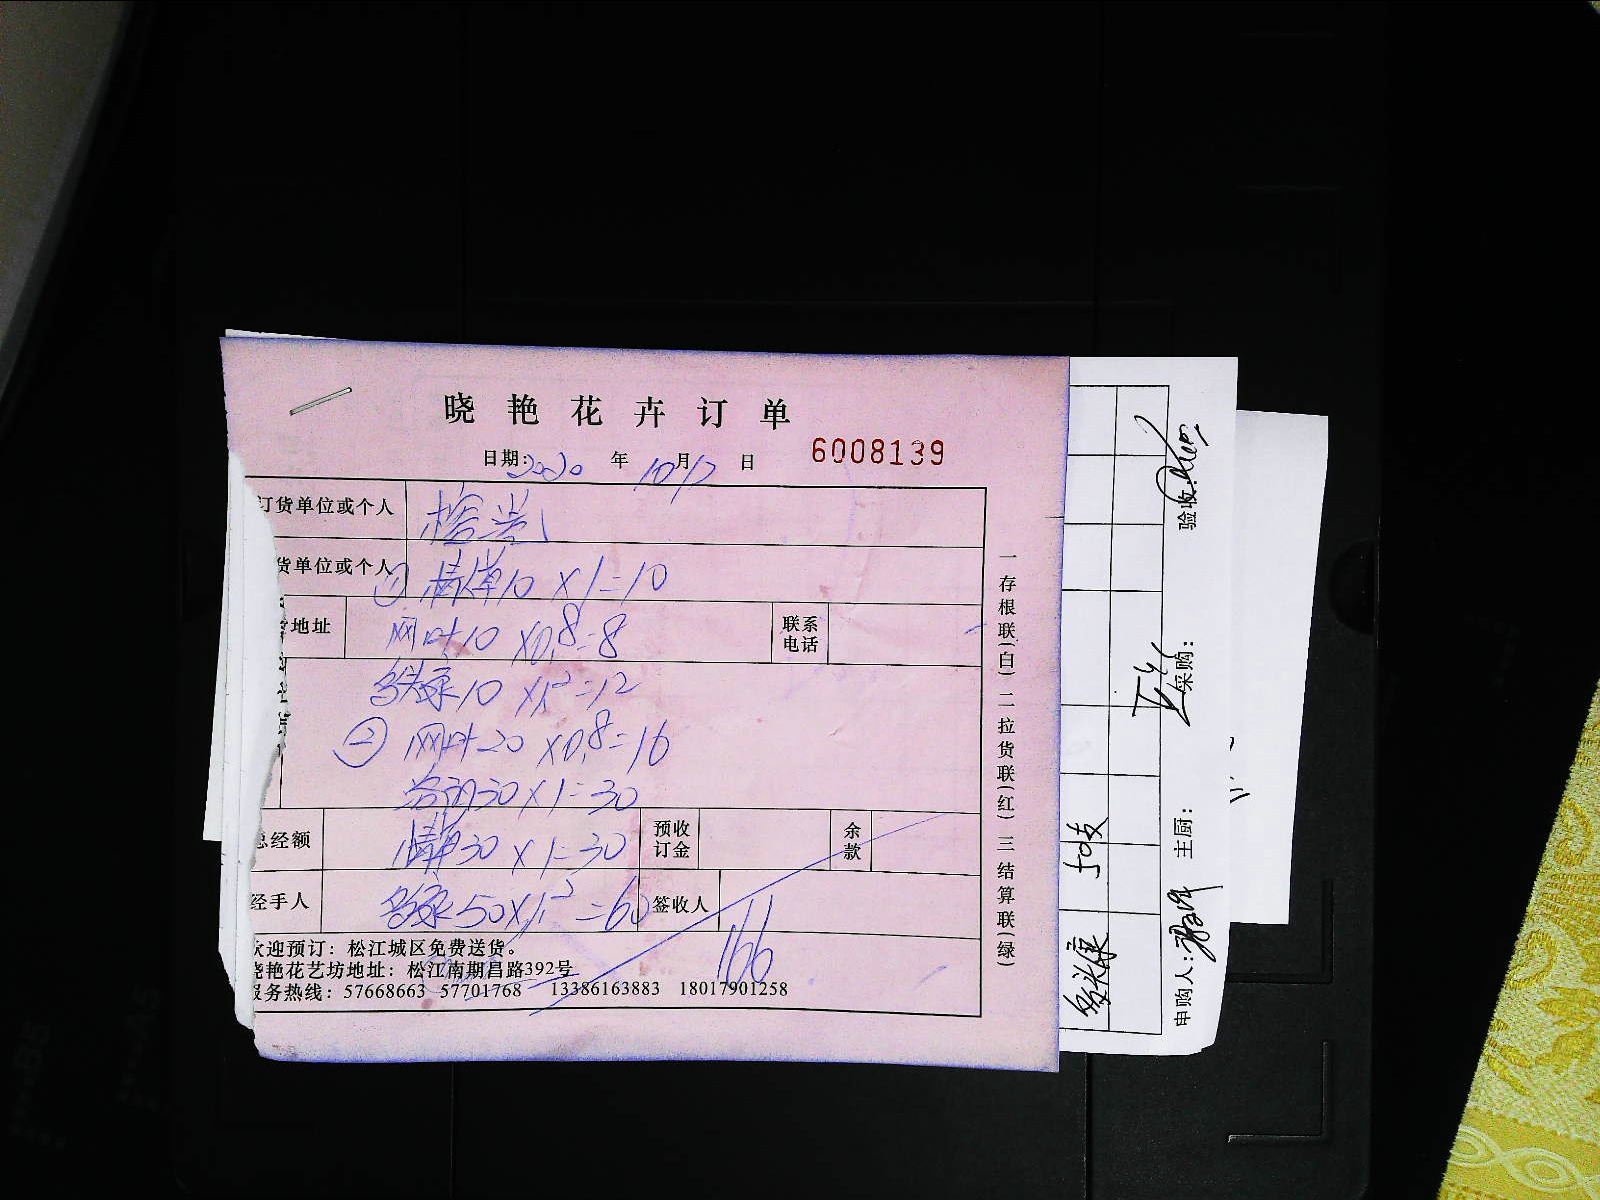 晓艳花卉订单
日期: 2020 年 10 月 17 日 6008139
订货单位或个人
货单位或个人 ① 10 X 1 = 10
地址 网叶 10 X 0.8 = 8 联系电话
多头康 10 X 1.2 = 12
② 网叶 20 X 0.8 = 16
30 X 1 = 30
总经额 30 X 1 = 30 预收订金 余款
经手人 多头康 50 X 1.2 = 60 签收人
166
欢迎预订：松江城区免费送货。
晓艳花艺坊地址：松江南期昌路392号
服务热线：57668663 57701768 13386163883 18017901258
一存根联(白) 二拉货联(红) 三结算联(绿)
多头康 50支
申购人: 主厨: 采购: 验收: